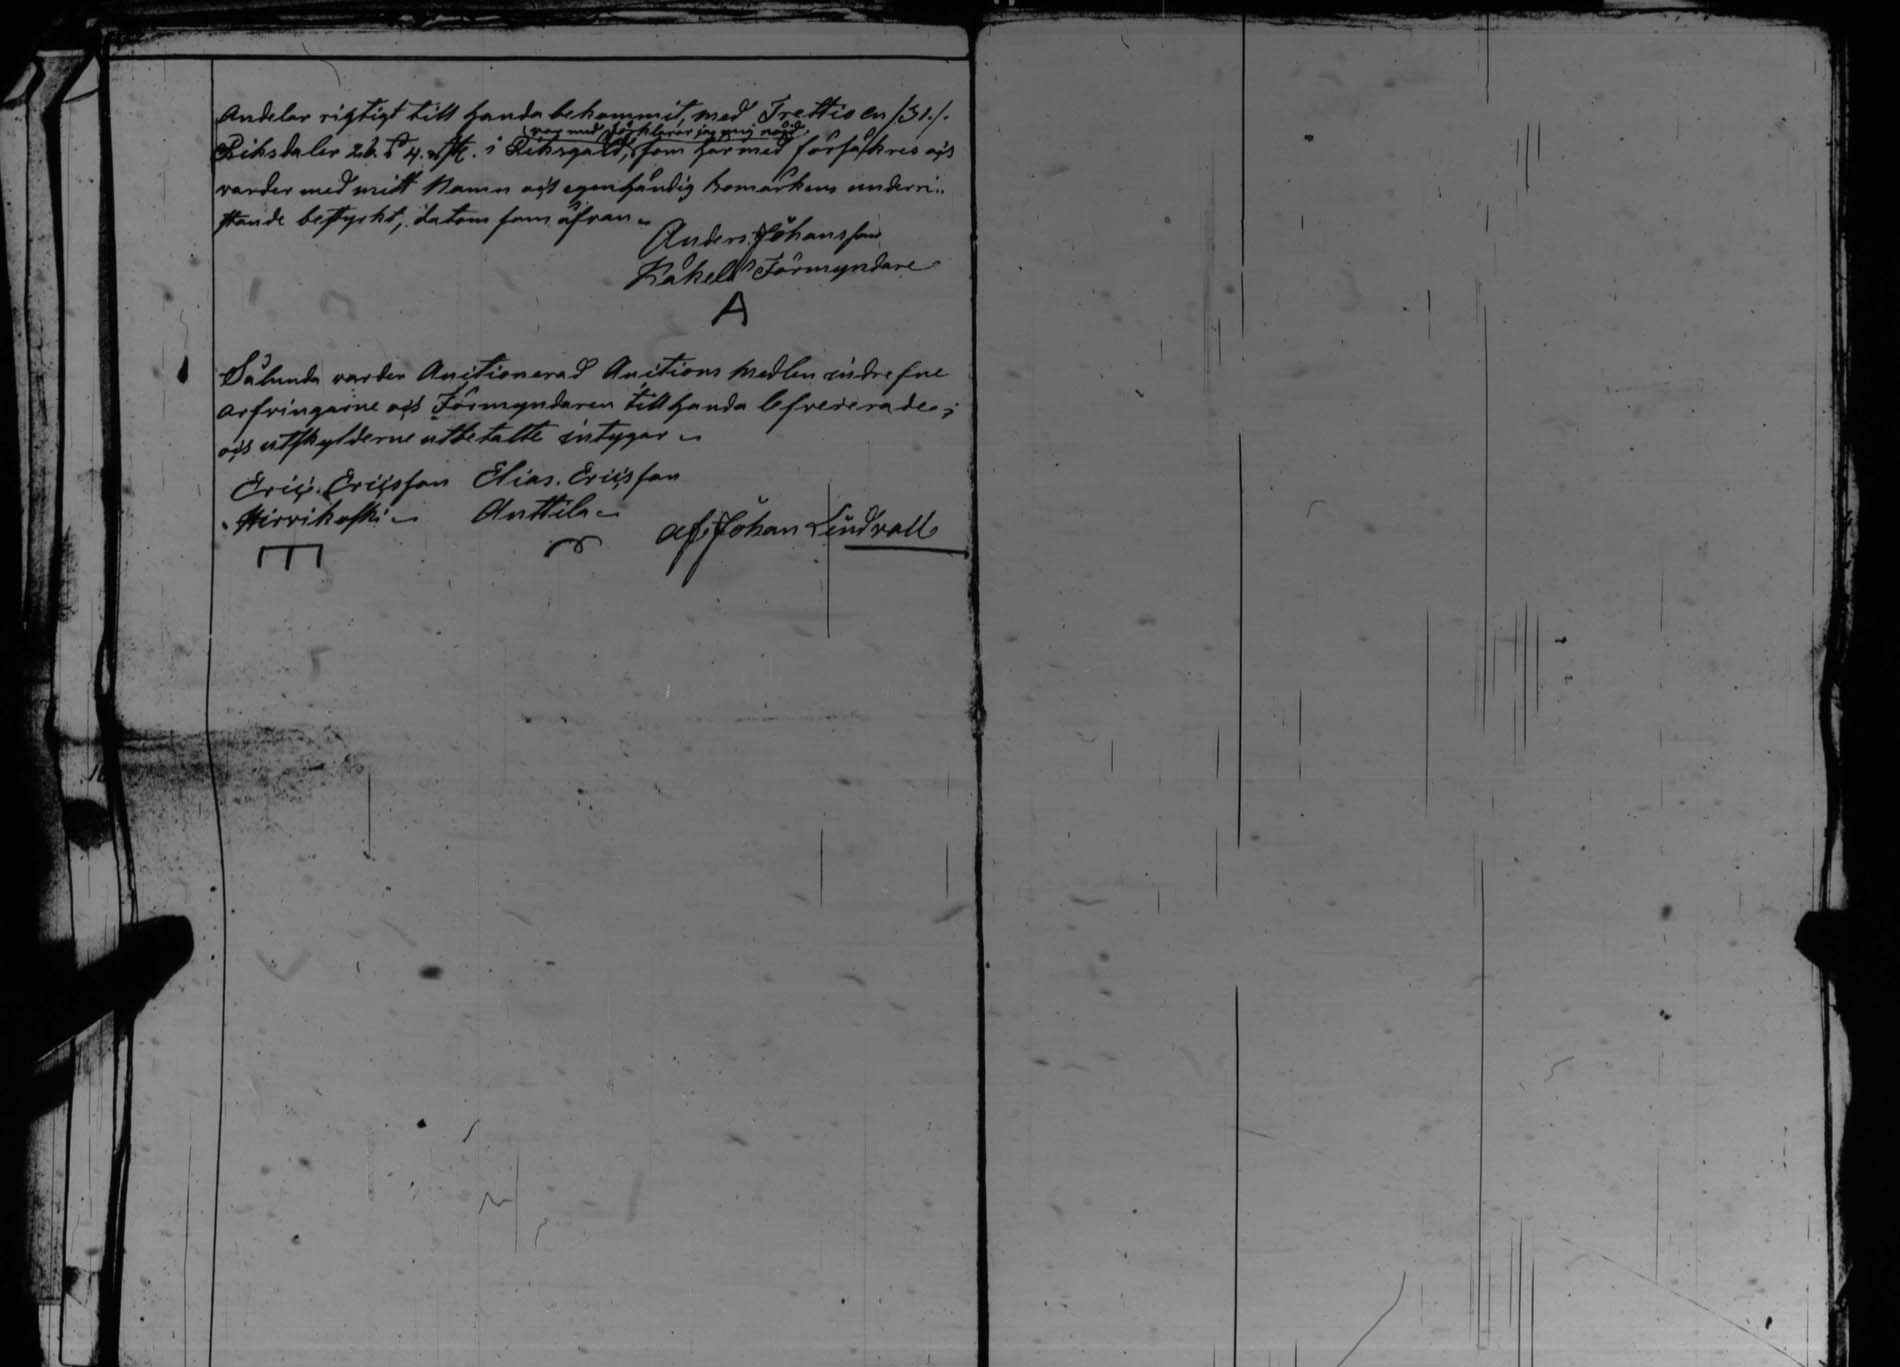 Andelar rigtigt till handa bekommit, med Trettio en /31./.
var med förklarar jag mig nögd
Riksdaler 26. s 4. rst. i Riksgäld, som här med försäkres och
varder med mitt Namn och egenhändig bomärkens underri..
ttande bestyrkt, datom som åfvan.
Anders Johansson
Kåkelä Förmyndare
A
Sålunda varder Auctionerad Auctions medlen indrefne
arfvingarne och Förmyndaren till handa lefvererade;
och utskylderne utbetalte intygar
Eric. Ericsson Elias. Ericsson
Hirvikoski Anttila
af Johan Lindvall